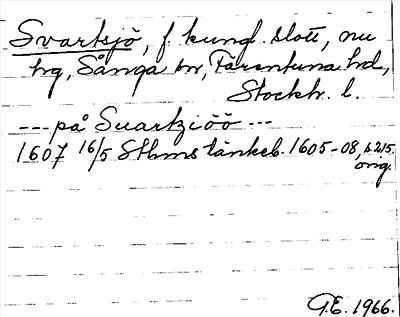 Svartsjö, f. kungl. slott, nu
hg, Sånga sn, Färentuna hd,
Stockh. l.
--- på Suartziöö ---
1607 16/5 Sthms tänkeb. 1605-08, s 215.
orig.
G.E. 1966.